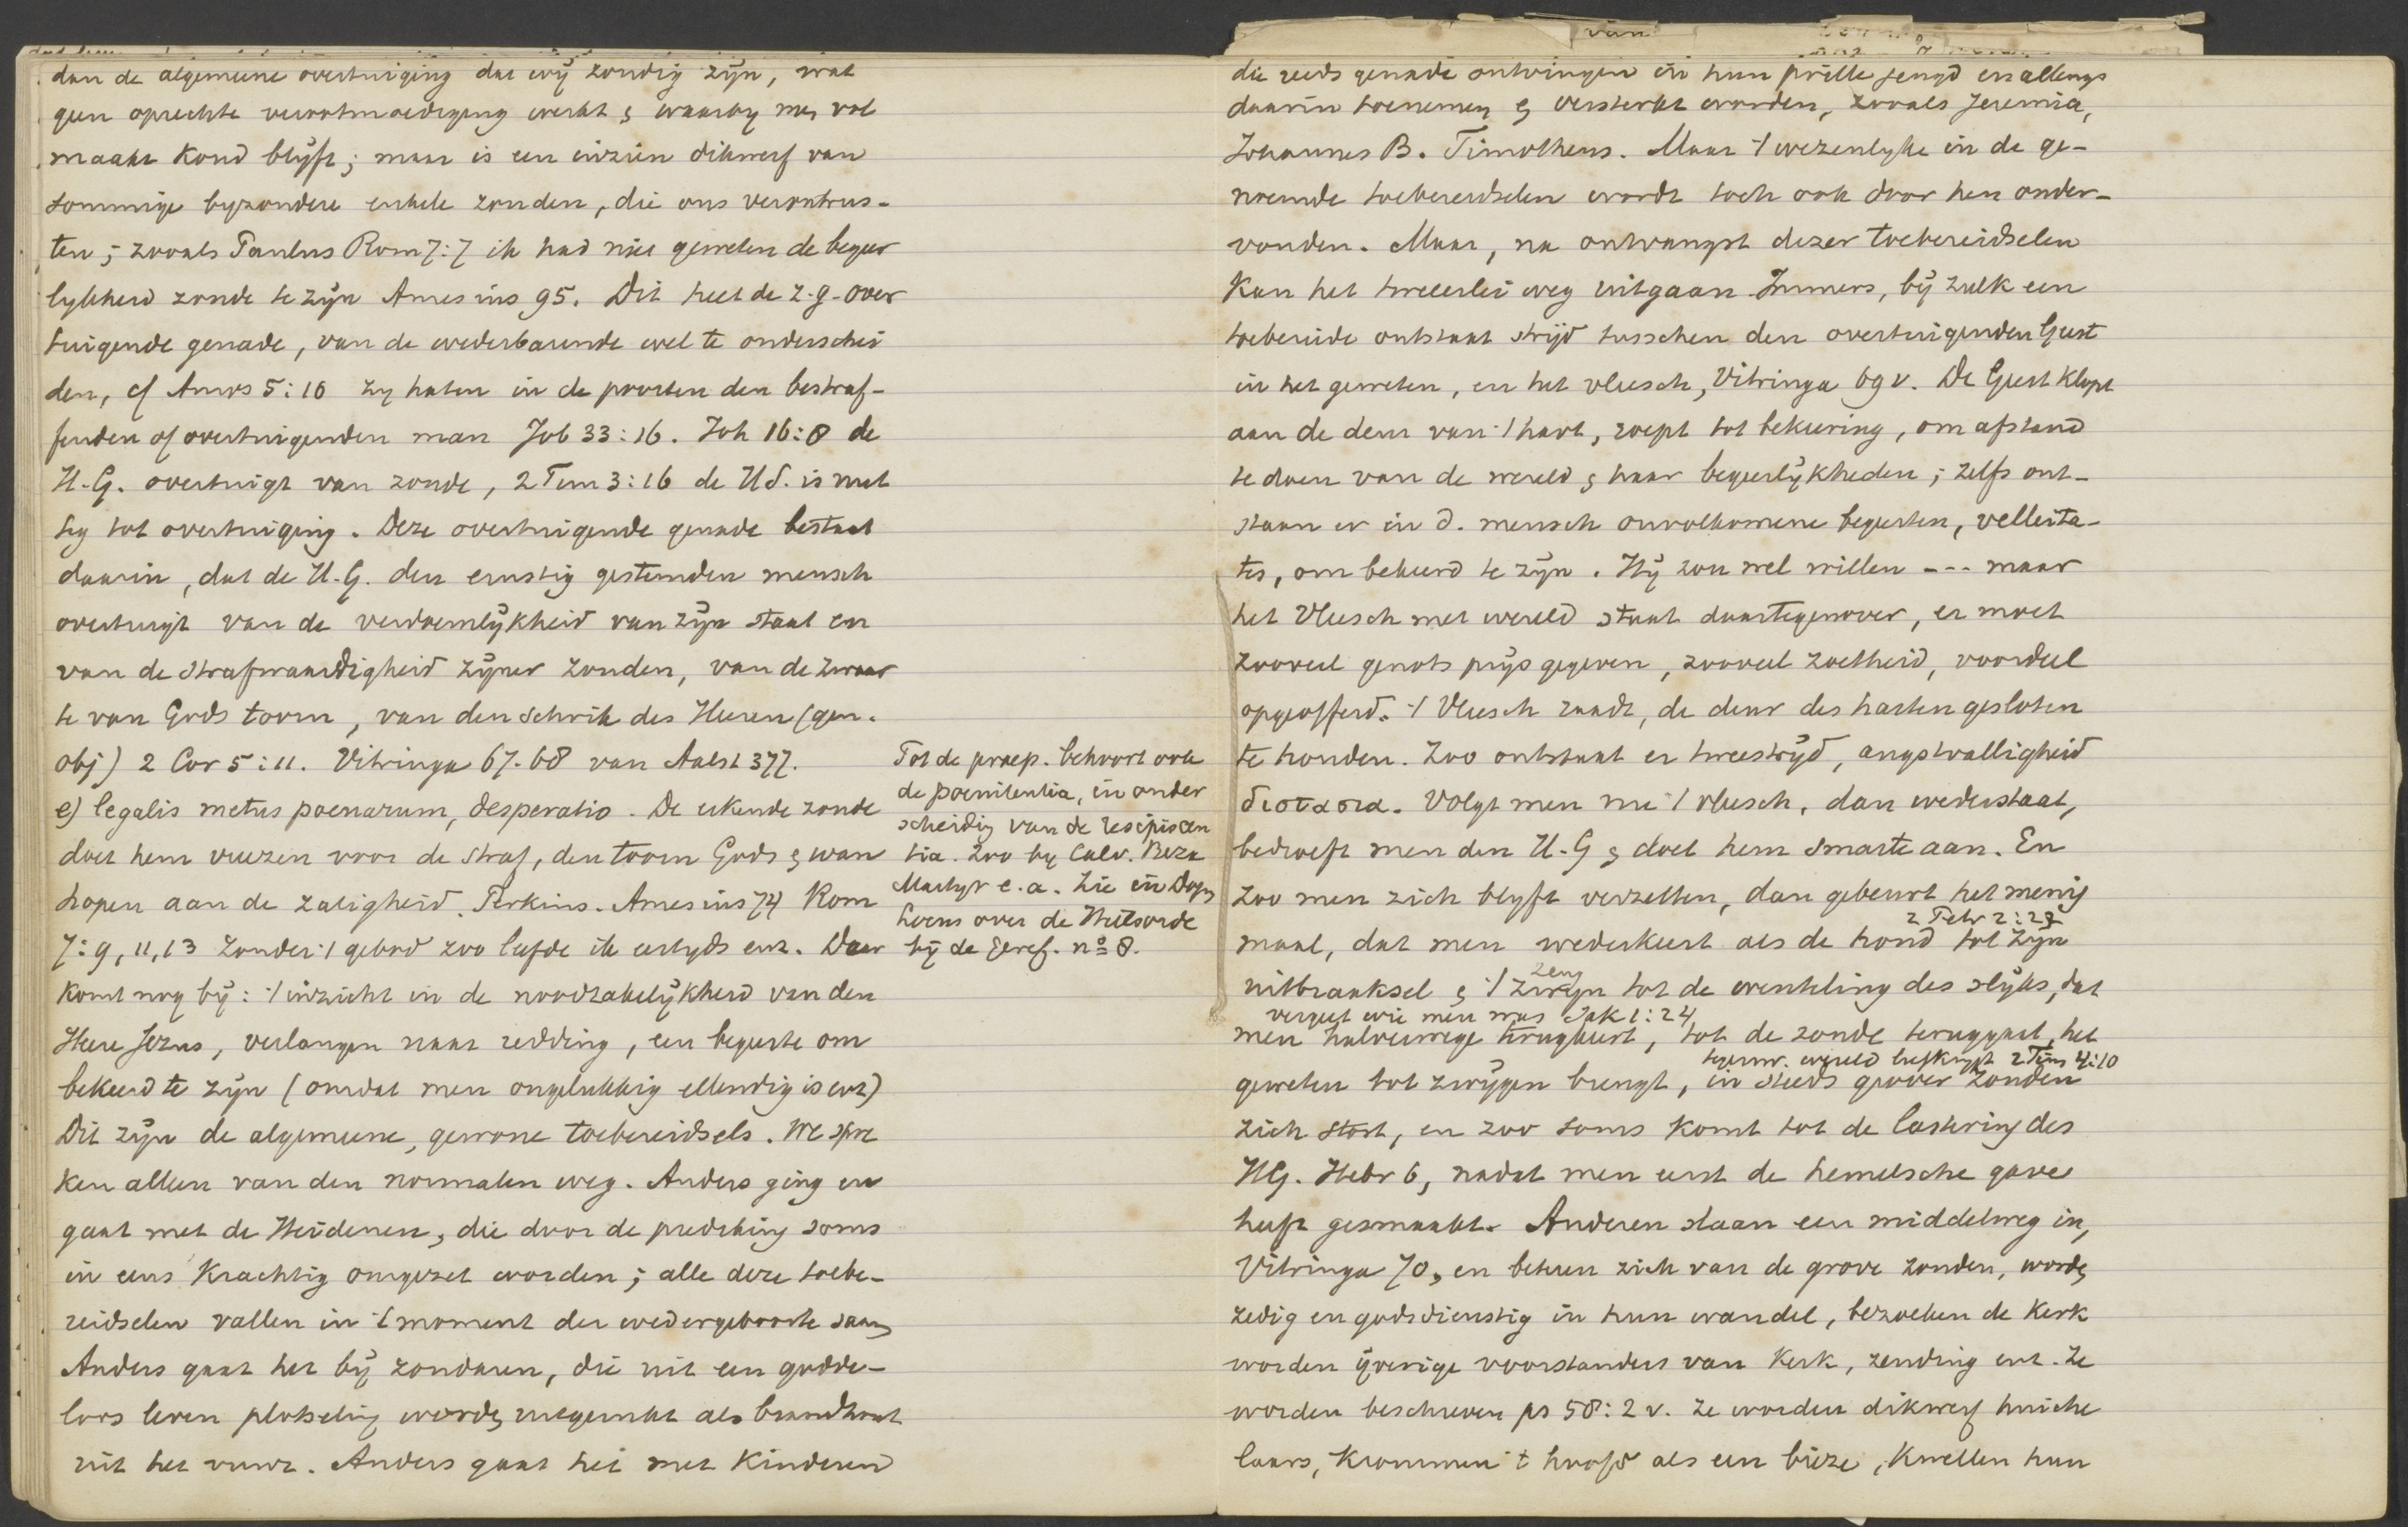 dan de algemeene overtuiging dat wij zondig zijn, wat
geen oprechte verootmoediging werkt & waarby men vol
maakt koud blijft; maar is een inzien dikwerf van
sommige byzondere enkele zonden, die ons verontrus-
ten; zooals Paulus Rom 7:7 ik had niet geweten de begeer
lykheid zonde te zijn Amesius 95. Dit heet de z.g. over
tuigende genade, van de wederbarende wel te onderschei
den, cf Amos 5:10 zy haten in de poorten den bestraf-
fenden of overtuigenden man Job 33:16. Joh 16:8 de
H.G. overtuigt van zonde, 2 Tim 3:16 de H.S. is nut
tig tot overtuiging. Deze overtuigende genade bestaat
daarin, dat de H.G. den ernstig gestemden mensch
overtuigt van de verdoemlijkheid van zijn staat en
van de strafwaardigheid zijner zonden, van de zwaar
te van Gods toorn, van den schrik des Heeren (gen.
obj) 2 Cor 5:11. Vitringa 67-68 van Aalst 377.
e) legalis metus poenarum, desperatio. De erkende zonde
doet hem vreezen voor de straf, den toorn Gods & wan
hopen aan de zaligheid. Perkins. Amesius 74 Rom
7:9, 11, 13 zonder 't gebod zoo leefde ik eertyds enz. Daar
komt nog bij: 't inzicht in de noodzakelijkheid van den
Heere Jezus, verlangen naar redding, een begeerte om
bekeerd te zijn (omdat men ongelukkig ellendig is enz)
Dit zijn de algemeene, gewone toebereidsels. We spre
ken alleen van den normalen weg. Anders ging en
gaat met de Heidenen, die door de prediking soms
in eens krachtig omgezet worden; alle deze toebe-
reidselen vallen in 't moment der wedergeboorte saam
Anders gaat het bij zondaren, die uit een godde-
loos leven plotseling worden uitgerukt als brandhout
uit het vuur. Anders gaat het met kinderen
Tot de praep. behoort ook
de poenitentia, in onder
scheiding van de resipiscen
tia. Zoo by Calv. Beza
Martyr e.a. Zie in Dogm
Locus over de Heilsorde
bij de Geref. no 8.
van
die reeds genade ontvingen in hun prille jeugd en allengs
daarin toenemen & versterkt worden, zooals Jeremia,
Johannes B. Timotheus. Maar 't wezenlyke in de ge-
noemde toebereidselen wordt toch ook door hen onder-
vonden. Maar, na ontvangst dezer toebereidselen
kan het tweeerlei weg uitgaan. Immers, bij zulk een
toebereide ontstaat strijd tusschen den overtuigenden Geest
in het geweten, en het vleesch, Vitringa 69 v. De Geest klopt
aan de deur van 't hart, roept tot bekeering, om afstand
te doen van de wereld & haar begeerlijkheden; zelfs ont-
staan er in d. mensch onvolkomene begeerten, velleita-
tes, om bekeerd te zijn. Hij zou wel willen --- maar
het Vleesch met wereld staat daartegenover, er moet
zooveel genots prijs gegeven, zooveel zoetheid, voordeel
opgeofferd. 't Vleesch raadt, de deur des harten gesloten
te houden. Zoo ontstaat er tweestrijd, angstvalligheid
διστασια. Volgt men nu 't vleesch, dan wederstaat,
bedroeft men den H.G & doet hem smarte aan. En
zoo men zich blyft verzetten, dan gebeurt het menig
2 Petr 2:22
maal, dat men wederkeert als de hond tot zijn
zeug
uitbraaksel & 't zwijn tot de wenteling des slijks, dat
vergeet wie men was Jak 1:24
men halverwege terugkeert, tot de zonde teruggaat, het
tegenw. wereld liefkrijgt 2 Tim 4:10
geweten tot zwijgen brengt, in steeds grover zonden
zich stort, en zoo soms komt tot de lastering des
HG. Hebr 6, nadat men eerst de hemelsche gave
heeft gesmaakt. Anderen slaan een middelweg in,
Vitringa 70, en bekeeren zich van de grove zonden, worden
zedig en godsdienstig in hun wandel, bezoeken de kerk
worden ijverige voorstanders van kerk, zending enz. Ze
worden beschreven ps 58:2 v. Ze worden dikwerf huiche
laars, krommen 't hoofd als een bieze, kwellen hun